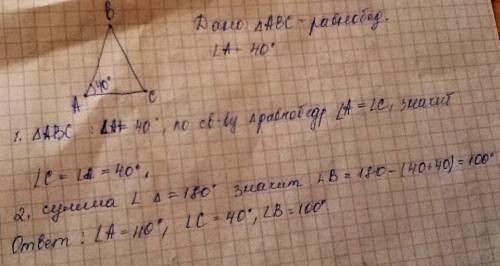 B
Дано △ABC - равнобед.
∠A - 40°
40°
A
C
1. △ABC : ∠A = 40°, по св-ву равнобедр ∠A = ∠C, значит
∠C = ∠A = 40°,
2. сумма ∠ △ = 180° значит ∠B = 180 - (40+40) = 100°
Ответ: ∠A = 40°, ∠C = 40°, ∠B = 100°